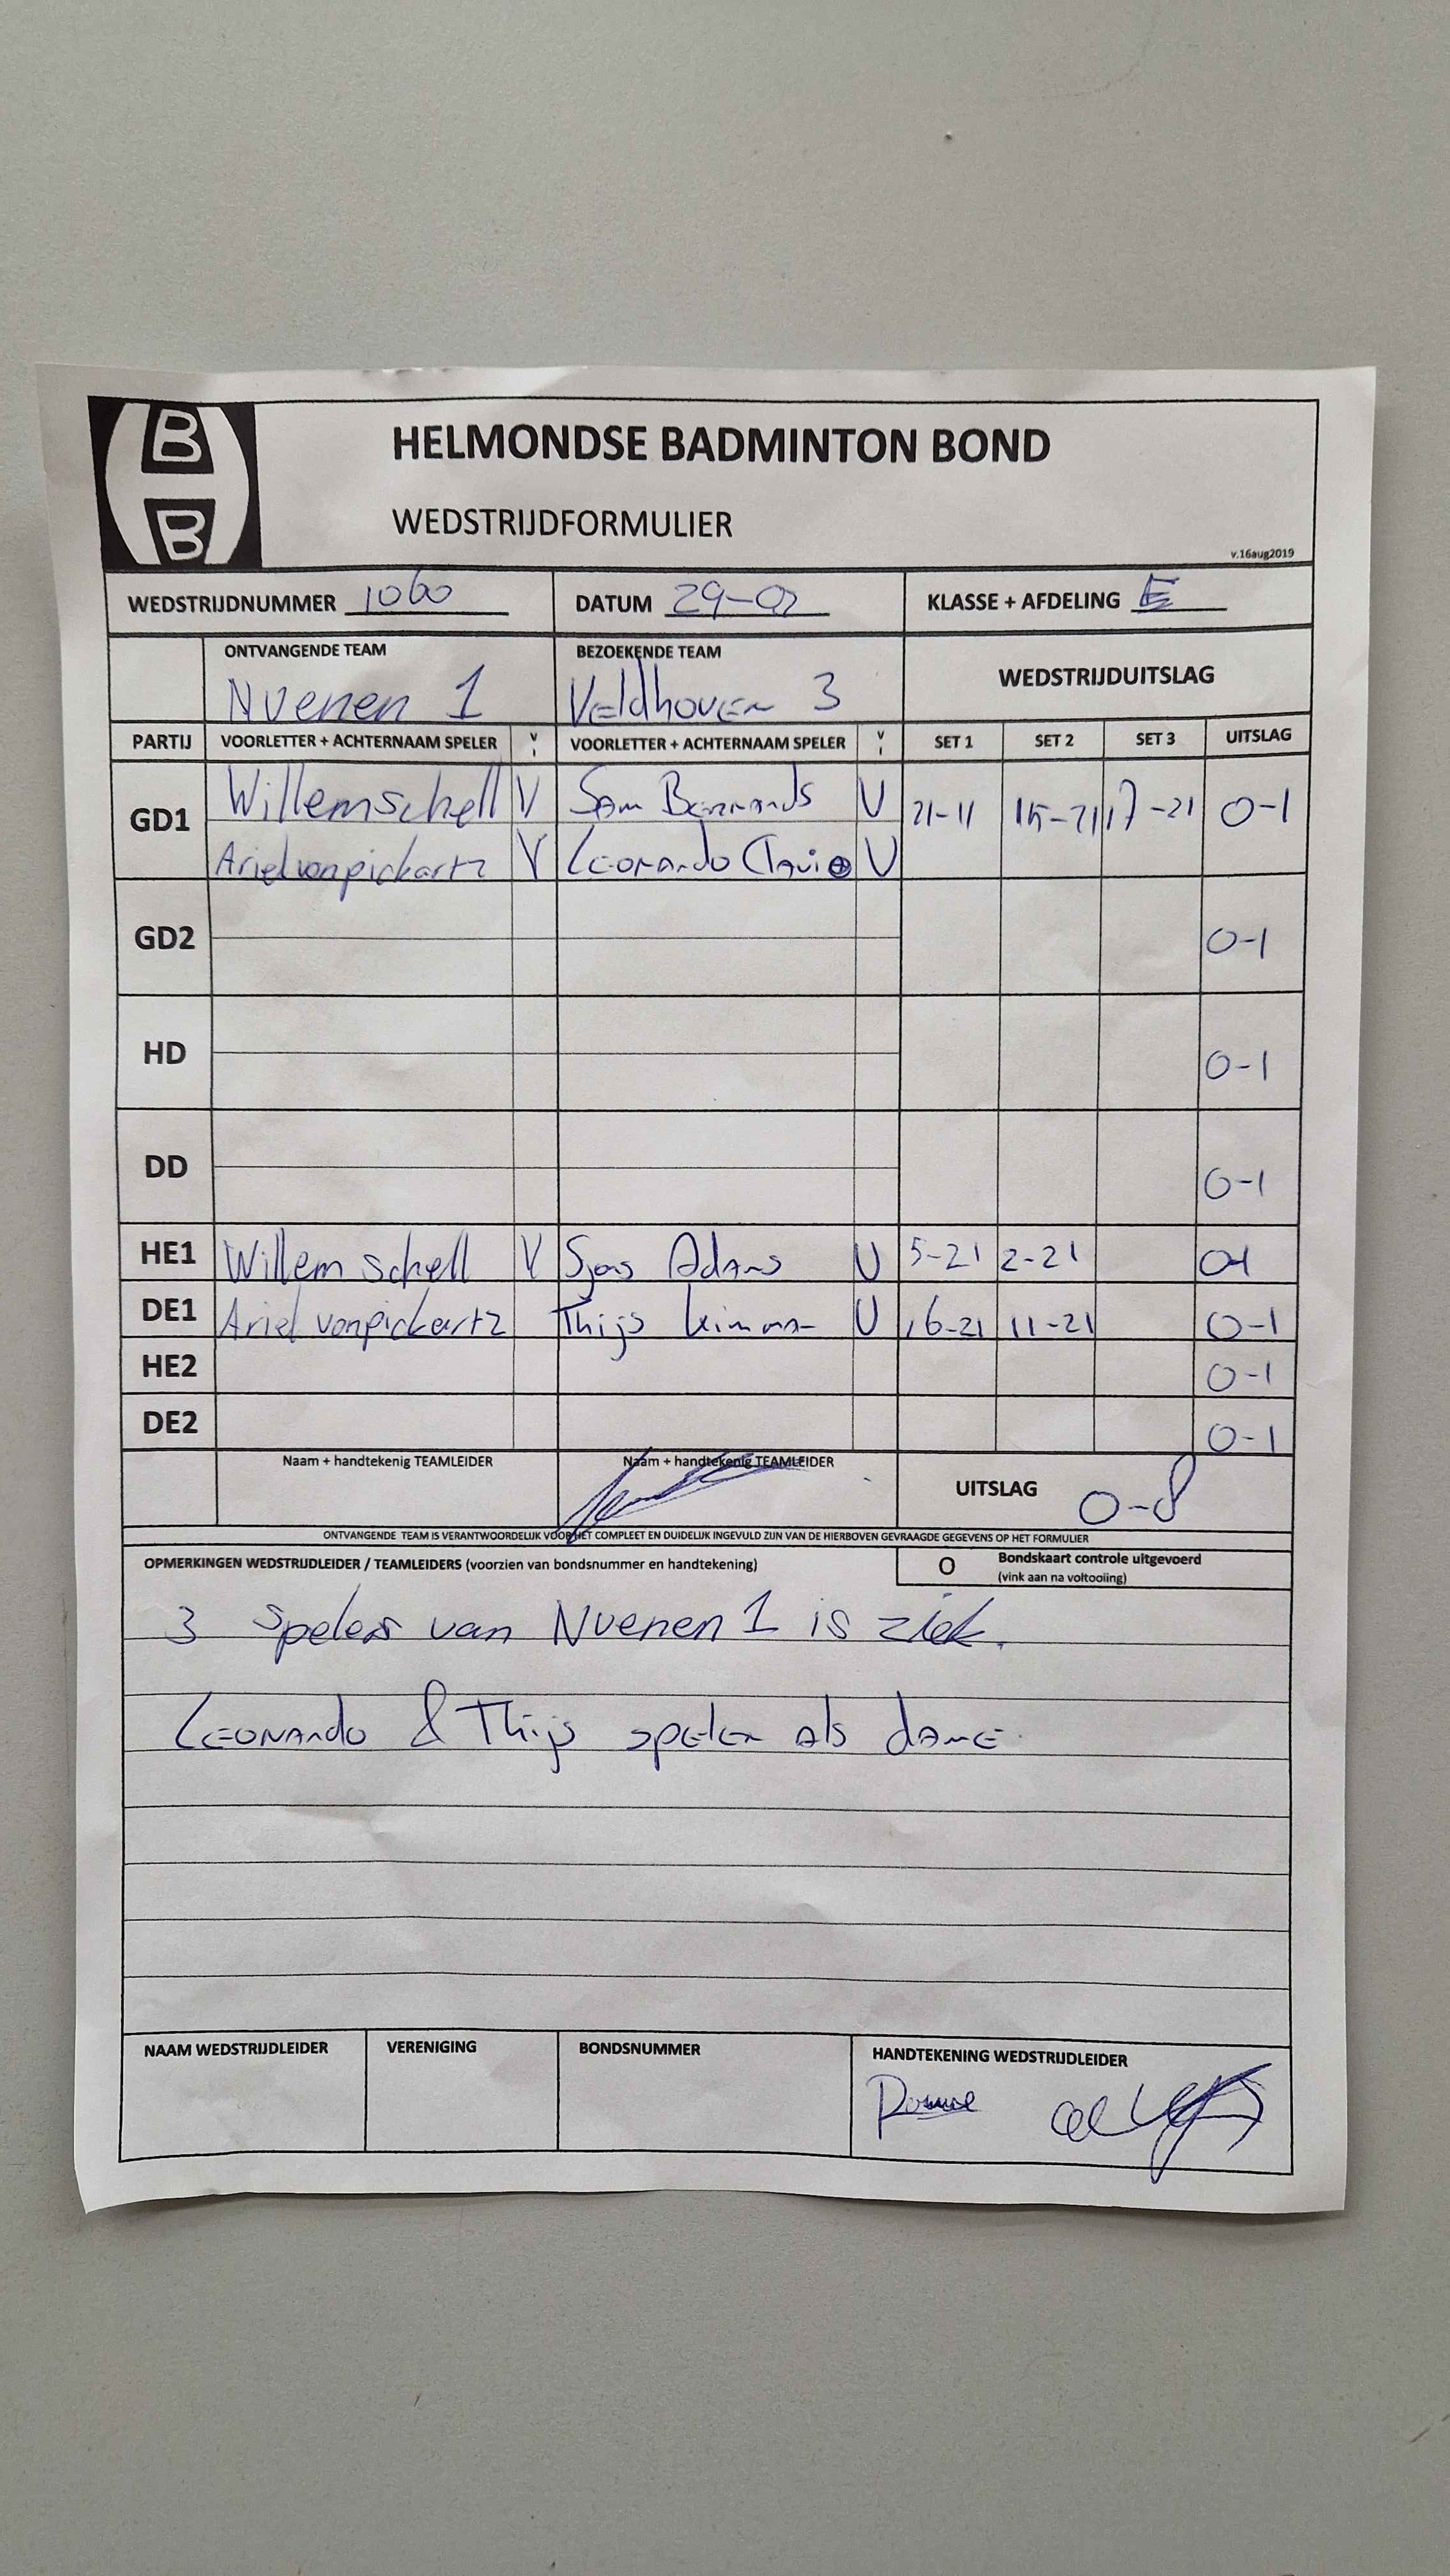 B
B
HELMONDSE BADMINTON BOND
WEDSTRIJDFORMULIER
v.16aug2019
WEDSTRIJDNUMMER 1060 DATUM 29-02 KLASSE + AFDELING E
ONTVANGENDE TEAM BEZOEKENDE TEAM WEDSTRIJDUITSLAG
Nuenen 1 Veldhoven 3
PARTIJ VOORLETTER + ACHTERNAAM SPELER V I VOORLETTER + ACHTERNAAM SPELER V I SET 1 SET 2 SET 3 UITSLAG
GD1 Willem schell V Sam V 21-11 15-21 17-21 0-1
Ariel vonpickartz V Leonardo V
GD2 0-1
HD 0-1
DD 0-1
HE1 Willem schell V Sjas Adams V 5-21 2-21 0-1
DE1 Ariel vonpickartz Thijs V 16-21 11-21 0-1
HE2 0-1
DE2 0-1
Naam + handtekenig TEAMLEIDER Naam + handtekenig TEAMLEIDER UITSLAG 0-8
ONTVANGENDE TEAM IS VERANTWOORDELIJK VOOR HET COMPLEET EN DUIDELIJK INGEVULD ZIJN VAN DE HIERBOVEN GEVRAAGDE GEGEVENS OP HET FORMULIER
OPMERKINGEN WEDSTRIJDLEIDER / TEAMLEIDERS (voorzien van bondsnummer en handtekening) O Bondskaart controle uitgevoerd
(vink aan na voltooiing)
3 spelers van Nuenen 1 is ziek.
Leonardo & Thijs spelen als dame.
NAAM WEDSTRIJDLEIDER VERENIGING BONDSNUMMER HANDTEKENING WEDSTRIJDLEIDER